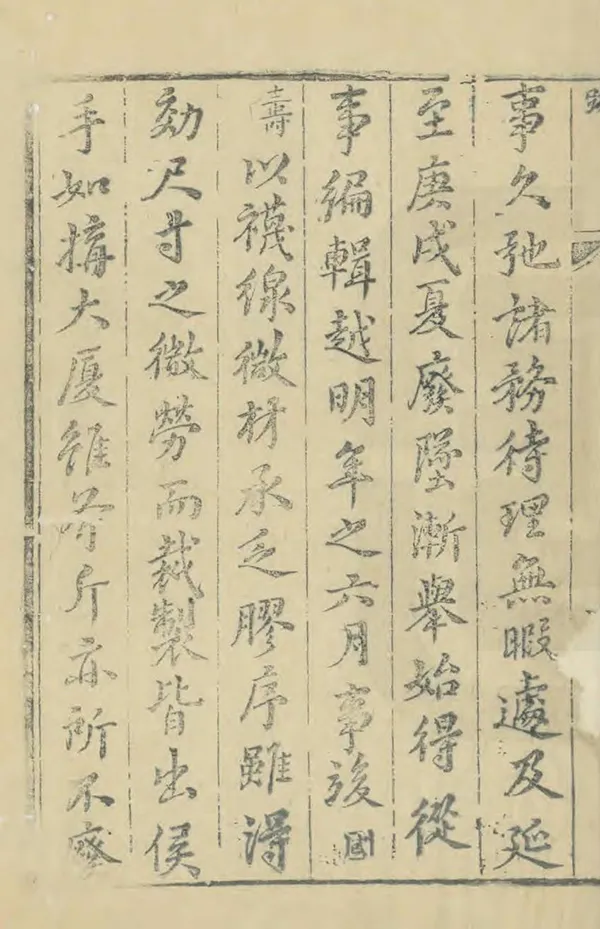 事久弛諸務待理無暇遽及延
至庚戌夏廢墜漸舉始得從
事編輯越明年之六月事竣國
壽以襪線微材承乏膠序雖得
効尺寸之微勞而裁製皆出侯
手如搆大厦錐斧斤亦所不廢